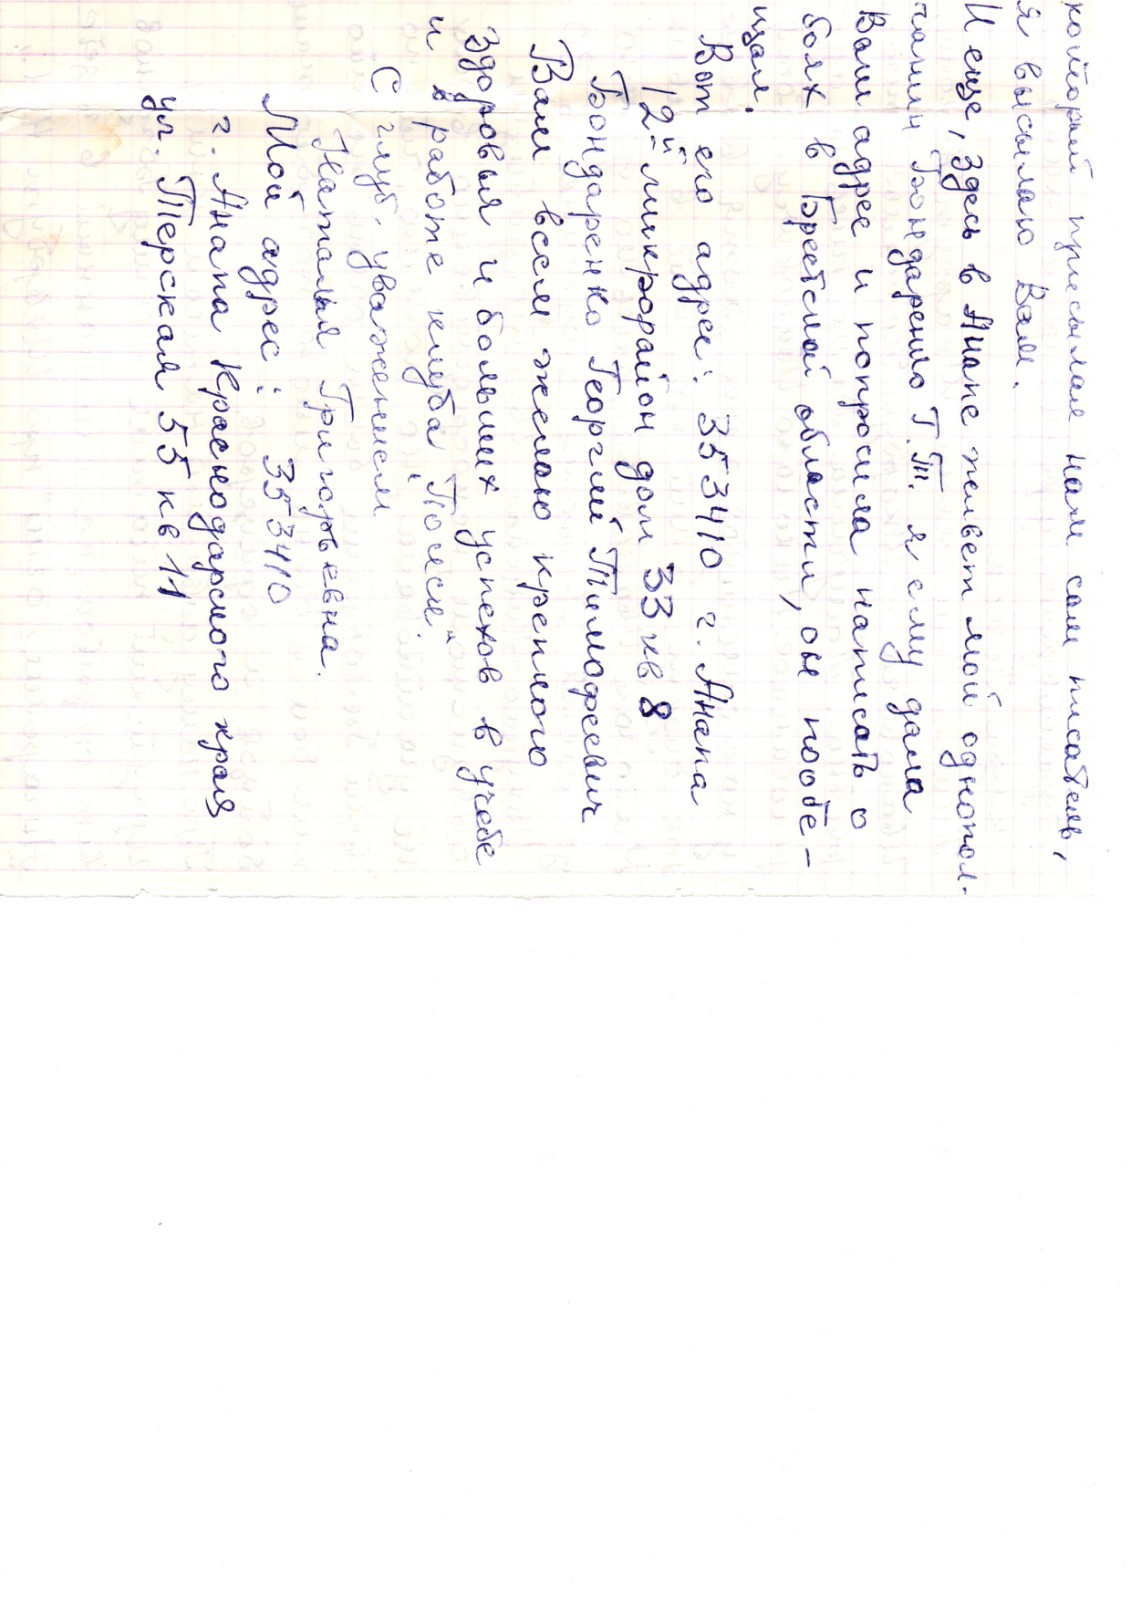 который присылал нам сам писатель,
я высылаю Вам.
И еще, здесь в Анапе живет мой однопол-
чанин Бондаренко Г.Т. я ему дала
Ваш адрес и попросила написать о
боях в Брестской области, он пообе-
щал.
Вот его адрес: 353410 г. Анапа
12й микрорайон дом 33 кв 8
Бондаренко Георгий Тимофеевич
Вам всем желаю крепкого
здоровья и больших успехов в учебе
и в работе клуба "Поиск".
С глуб. уважением
Наталья Григорьевна.
Мой адрес: 353410
г. Анапа Краснодарского края
ул. Терская 55 кв 11